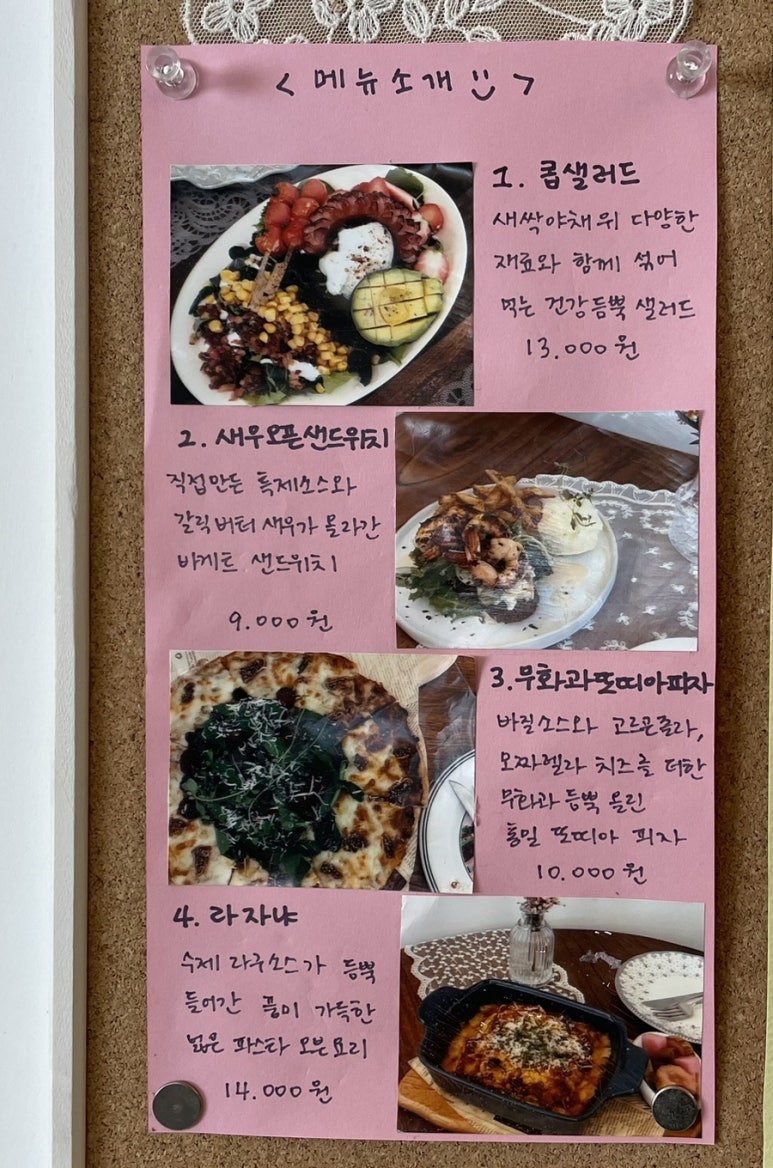 < 메뉴소개 >
1. 콥샐러드
새싹야채위 다양한
재료와 함께 섞어
먹는 건강듬뿍 샐러드
13.000원
2. 새우오픈샌드위치
직접만든 특제소스와
갈릭버터새우가 올라간
바게트 샌드위치
9.000원
3. 무화과또띠아피자
바질소스와 고르곤졸라,
모짜렐라 치즈를 더한
무화과 듬뿍 올린
통밀 또띠아 피자
10.000원
4. 라자냐
수제 라구소스가 듬뿍
들어간 풍미 가득한
넓은 파스타 오븐요리
14.000원